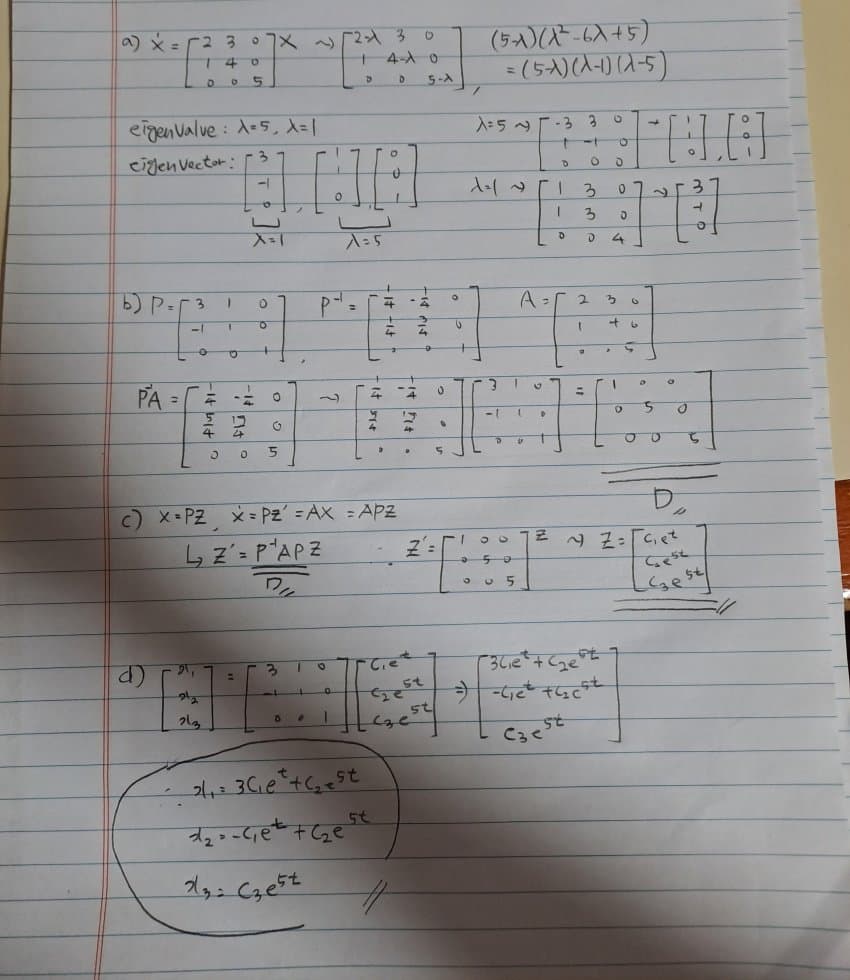 a) ẋ = [2 3 0; 1 4 0; 0 0 5] X ⇝ [2-λ 3 0; 1 4-λ 0; 0 0 5-λ], (5-λ)(λ²-6λ+5)
= (5-λ)(λ-1)(λ-5)
eigenvalue : λ=5, λ=1
λ=5 ⇝ [-3 3 0; 1 -1 0; 0 0 0] → [1; 1; 0], [0; 0; 1]
eigenvector : [3; -1; 0], [1; 1; 0] [0; 0; 1]
λ=1 λ=5
λ=1 ⇝ [1 3 0; 1 3 0; 0 0 4] ⇝ [3; -1; 0]
b) P = [3 1 0; -1 1 0; 0 0 1], P⁻¹ = [1/4 -1/4 0; 1/4 3/4 0; 0 0 1] A = [2 3 0; 1 4 0; 0 0 5]
P⁻¹A = [1/4 -1/4 0; 5/4 15/4 0; 0 0 5] ⇝ [1/4 -1/4 0; 5/4 15/4 0; 0 0 5] [3 1 0; -1 1 0; 0 0 1] = [1 0 0; 0 5 0; 0 0 5]
D
c) X = PZ, ẋ = PZ' = AX = APZ
↳ Z' = P⁻¹APZ ∴ Z' = [1 0 0; 0 5 0; 0 0 5] Z ⇝ Z = [C₁eᵗ; C₂e⁵ᵗ; C₃e⁵ᵗ]
D
d) [x₁; x₂; x₃] = [3 1 0; -1 1 0; 0 0 1] [C₁eᵗ; C₂e⁵ᵗ; C₃e⁵ᵗ] ⇒ [3C₁eᵗ+C₂e⁵ᵗ; -C₁eᵗ+C₂e⁵ᵗ; C₃e⁵ᵗ]
∴ x₁ = 3C₁eᵗ+C₂e⁵ᵗ
x₂ = -C₁eᵗ+C₂e⁵ᵗ
x₃ = C₃e⁵ᵗ